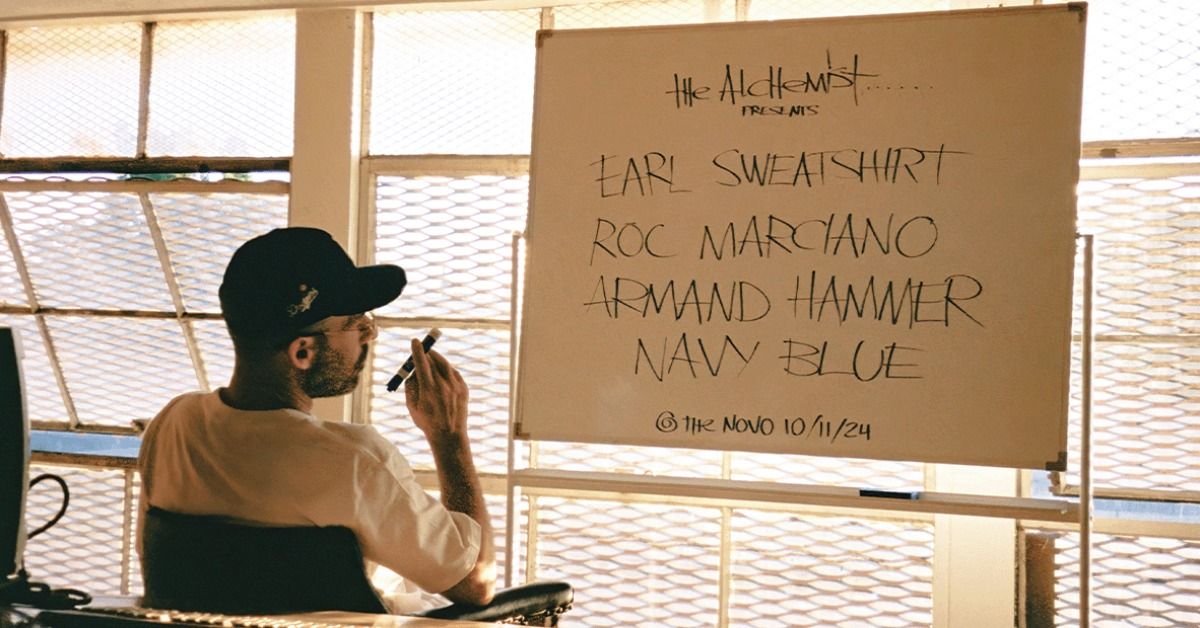 the Alchemist......
PRESENTS
EARL SWEATSHIRT
ROC MARCIANO
ARMAND HAMMER
NAVY BLUE
@ the NOVO 10/11/24